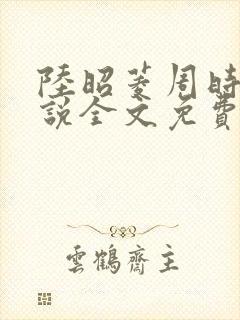 陸昭菱周時
說全文免費
雲鶴齋主